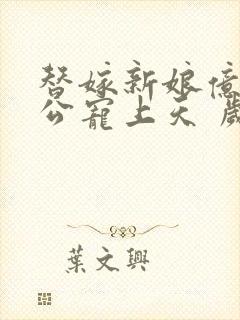 替嫁新娘億
公寵上天 歲
葉文興